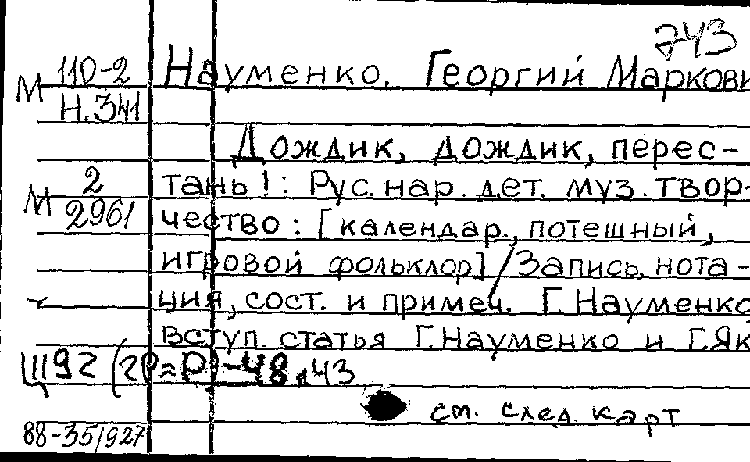 243
М 110-2
Н.341
Науменко, Георгий Маркови
Дождик, дождик, перес-
М 2
2961
тань!: Рус. нар. дет. муз. твор-
чество: [календар., потешный,
игровой фольклор] / Запись, нота-
ция, сост. и примеч. Г. Науменко,
Вступ. статья Г. Науменко и Г. Як
Щ92(2Р=Р)-48 д43
см. след карт
88-35/927